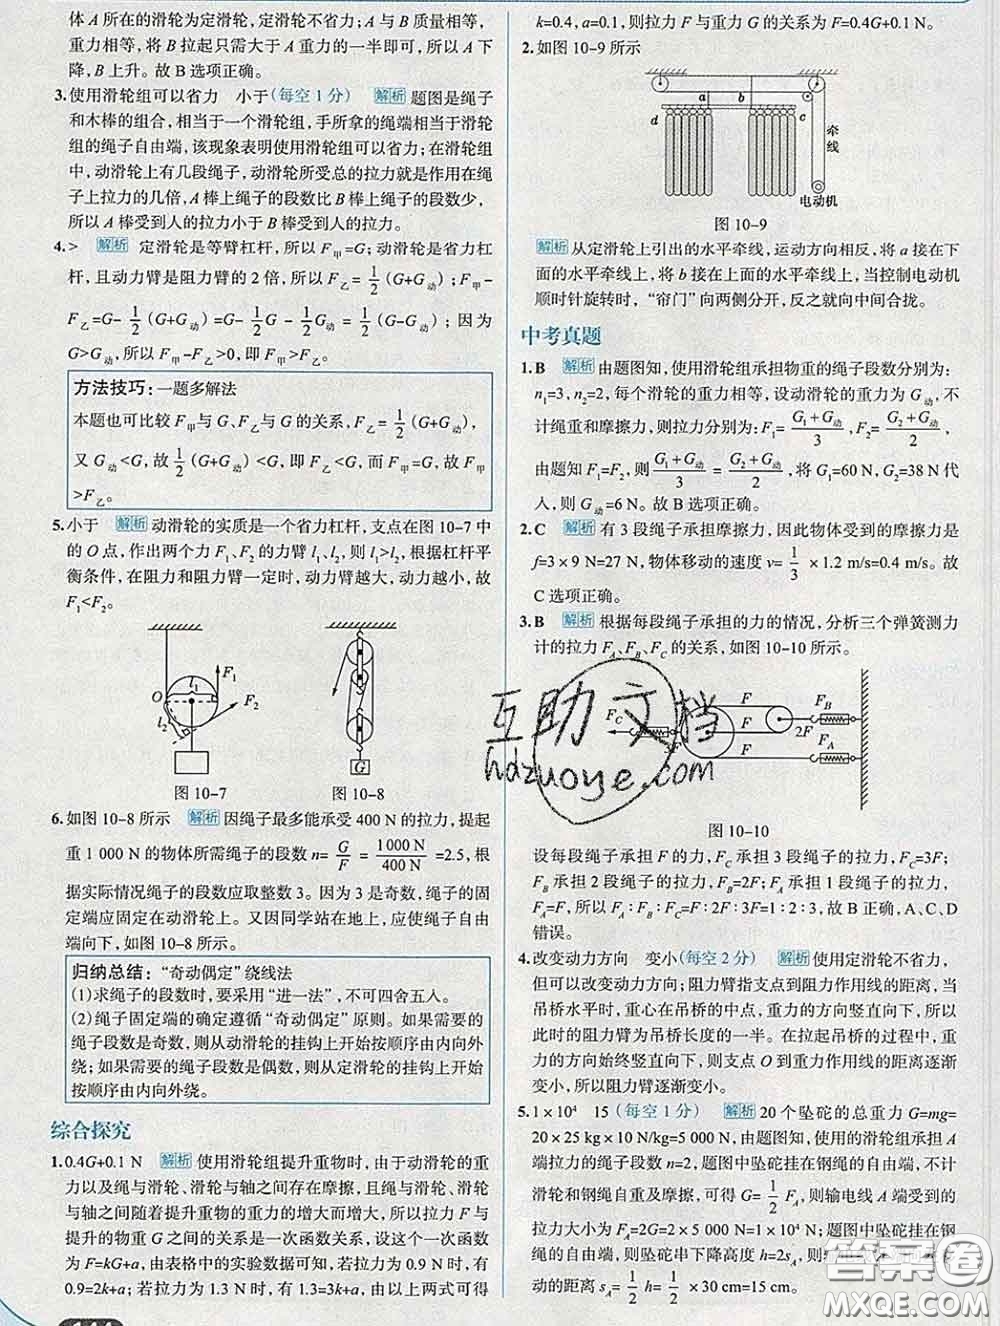 体 A 所在的滑轮为定滑轮,定滑轮不省力;当它们的
重力相等,将 B 拉起只需大于 A 重力的一半即可,所以 A 下
降,B 上升。故 B 选项正确。
3.使用滑轮组可以省力 小于(每空 1 分) 解析 题图是绳子
和木棒的组合,相当于一个滑轮组,手所拿的绳端相当于滑轮
组的绳子自由端,该现象表明使用滑轮组可以省力;在滑轮组
中,动滑轮上有几段绳子,动滑轮所受总的拉力就是作用在绳
子上拉力的几倍,A 棒上绳子的段数比 B 棒上绳子的段数少,
所以 A 棒受到人的拉力小于 B 棒受到人的拉力。
4.> 解析 定滑轮是等臂杠杆,所以 F甲=G;动滑轮是省力杠
杆,且动力臂是阻力臂的 2 倍,所以 F乙=1/2(G+G动);F甲-
F乙=G-1/2(G+G动)=G-1/2G-1/2G动=1/2(G-G动);因为
G>G动,所以 F甲-F乙>0,即 F甲>F乙。
方法技巧:一题多解法
本题也可比较 F甲与 G、F乙与 G 的关系,F乙=1/2(G+G动),
又 G动<G,故1/2(G+G动)<G,即 F乙<G,而 F甲=G,故 F甲
>F乙。
5.小于 解析 动滑轮的实质是一个省力杠杆,支点在图 10-7 中
的 O 点,作出两个力 F₁、F₂ 的力臂 l₁、l₂,则 l₁>l₂,根据杠杆平
衡条件,在阻力和阻力臂一定时,动力臂越大,动力越小,故
F₁<F₂。
O l₁ l₂ F₁ F₂
G
图 10-7 图 10-8
6.如图 10-8 所示 解析 因绳子最多能承受 400 N 的拉力,提起
重 1 000 N 的物体所需绳子的段数 n=G/F=1 000 N/400 N=2.5,根
据实际情况绳子的段数应取整数 3。因为 3 是奇数,绳子的固
定端应固定在动滑轮上。又因同学站在地上,应使绳子自由
端向下,如图 10-8 所示。
归纳总结:“奇动偶定”绕线法
(1)求绳子的段数时,要采用“进一法”,不可四舍五入。
(2)绳子固定端的确定遵循“奇动偶定”原则。如果需要的
绳子段数是奇数,则从动滑轮的挂钩上开始按顺序由内向外
绕;如果需要的绳子段数是偶数,则从定滑轮的挂钩上开始
按顺序由内向外绕。
综合探究
1.0.4G+0.1 N 解析 使用滑轮组提升重物时,由于动滑轮的重
力以及绳与滑轮、滑轮与轴之间存在摩擦,且绳与滑轮、滑轮
与轴之间随着提升重物的重力的增大而增大,所以拉力 F 与
提升的物重 G 之间的关系是一次函数关系,设这个关系式为
F=kG+a,由表格中的实验数据可知,若拉力为 0.9 N 时,有
0.9=2k+a;若拉力为 1.3 N 时,有 1.3=3k+a,由以上两式可得
144
k=0.4,a=0.1,则拉力 F 与重力 G 的关系为 F=0.4G+0.1 N。
2.如图 10-9 所示
a b c d 牵线 电动机
图 10-9
解析 从定滑轮上引出的水平牵线,运动方向相反,将 a 接在下
面的水平牵线上,将 b 接在上面的水平牵线上,当控制电动机
顺时针旋转时,“帘门”向两侧分开,反之就向中间合拢。
中考真题
1.B 解析 由题图知,使用滑轮组承担物重的绳子段数分别为:
n₁=3,n₂=2,每个滑轮的重力相等,设动滑轮的重力为 G动,不
计绳重和摩擦力,则拉力分别为:F₁=(G₁+G动)/3,F₂=(G₂+G动)/2,
由题知 F₁=F₂,则(G₁+G动)/3=(G₂+G动)/2,将 G₁=60 N,G₂=38 N 代
人,则 G动=6 N。故 B 选项正确。
2.C 解析 有 3 段绳子承担摩擦力,因此物体受到的摩擦力是
f=3×9 N=27 N,物体移动的速度 v=1/3×1.2 m/s=0.4 m/s。故
C 选项正确。
3.B 解析 根据每段绳子承担的力的情况,分析三个弹簧测力
计的拉力 F_A、F_B、F_C 的关系,如图 10-10 所示。
F_C 3F F F F 2F F_B F_A
图 10-10
设每段绳子承担 F 的力,F_C 承担 3 段绳子的拉力,F_C=3F;
F_B 承担 2 段绳子的拉力,F_B=2F;F_A 承担 1 段绳子的拉力,
F_A=F,所以 F_A∶F_B∶F_C=F∶2F∶3F=1∶2∶3,故 B 正确,A、C、D
错误。
4.改变动力方向 变小(每空 2 分) 解析 使用定滑轮不省力,
但可以改变动力方向;阻力臂指支点到阻力作用线的距离,当
吊桥水平时,重心在吊桥的中点,重力的方向竖直向下,所以
此时的阻力臂为吊桥长度的一半。在拉起吊桥的过程中,重
力的方向始终竖直向下,则支点 O 到重力作用线的距离逐渐
变小,所以阻力臂逐渐变小。
5.1×10⁴ 15(每空 1 分) 解析 20 个坠砣的总重力 G=mg=
20×25 kg×10 N/kg=5 000 N,由题图知,使用的滑轮组承担 A
端拉力的绳子段数 n=2,题图中坠砣挂在钢绳的自由端,不计
滑轮和钢绳自重及摩擦,可得 G=1/2F_A,则输电线 A 端受的
拉力大小为 F_A=2G=2×5 000 N=1×10⁴ N;题图中坠砣挂在钢
绳的自由端,则坠砣串下降高度 h=2s_A,则
动的距离 s_A=1/2h=1/2×30 cm=15 cm。
互助文档
hdzuoye.com
答案卷
MXQE.COM